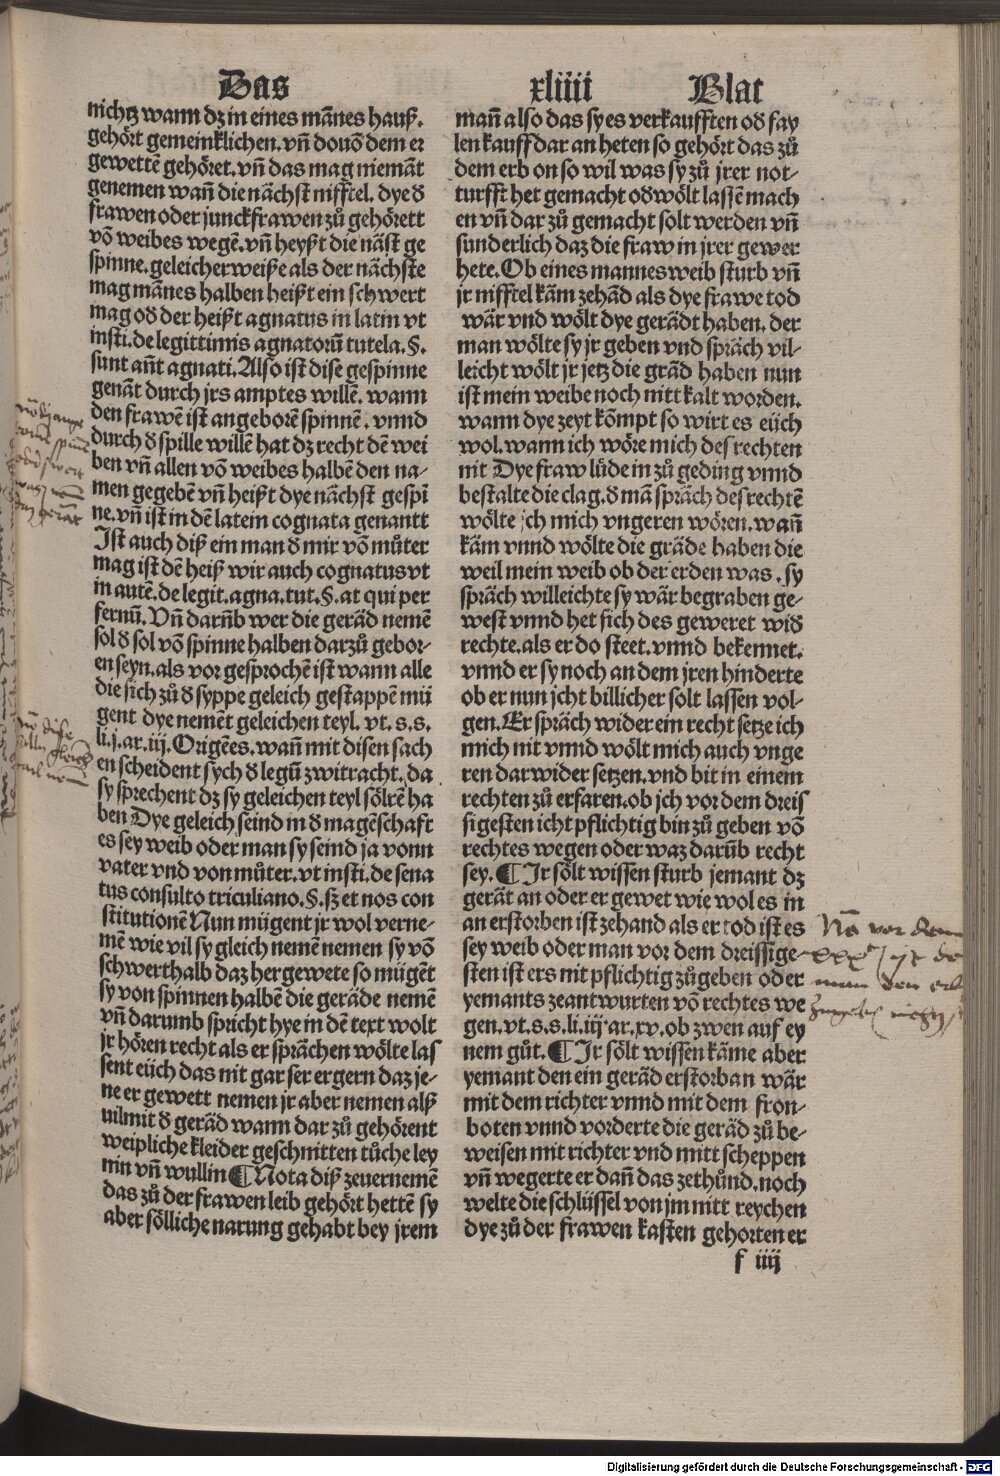 Das xliiii Blat
nichtz wann dz in eines mānes hauß.
gehört gemeinklichen. vn̄ douō dem er
gewettē gehöret. vn̄ das mag niemāt
genemen wan̄ die nächst nifftel. dye d̕
frawen oder junckfrawen zů gehörett
vō weibes wegē. vn̄ heyßt die näst ge
spinne. geleicherweiße als der nächste
mag mānes halben heißt ein schwert
mag od̕ der heißt agnatus in latin vt
insti. de legittimis agnatorū tutela. §.
sunt an̄t agnati. Also ist dise gespinne
genāt durch jrs amptes willē. wann
den frawē ist angeborē spinnē. vnnd
durch d̕ spille willē hat dz recht dē wei
ben vn̄ allen vō weibes halbē den na-
men gegebē vn̄ heißt dye nächst gespī
ne. vn̄ ist in dē latein cognata genantt
Ist auch diß ein man d̕ mir vō můter
mag ist dē heiß wir auch cognatus vt
in autē. de legit. agna. tut. §. at qui per
fernū. Vn̄ darūb wer die geräd nemē
sol d̕ sol vō spinne halben darzů gebor-
en seyn. als vor gesprochē ist wann alle
die sich zů d̕ syppe geleich gestappē mü
gent dye nemēt geleichen teyl. vt. s. s.
li. j. ar. iij. Origēes. wan̄ mit disen sach
en scheident sych d̕ legū zwitracht. da
sy sprechent dz sy geleichen teyl sölrē ha
ben Dye geleich seind in d̕ magēschaft
es sey weib oder man sy seind ja vonn
vater vnd von můter. vt insti. de sena
tus consulto triculiano. §. sz et nos con
stitutionē Nun mügent jr wol verne-
mē wie vil sy gleich nemē nemen sy vō
schwerthalb daz hergewete so mügēt
sy von spinnen halbē die geräde nemē
vn̄ darumb spricht hye in dē text wolt
jr hören recht als er sprächen wölte las
sent eüch das nit gar ser ergern daz je-
ne er gewett nemen jr aber nemen alß
uil mit d̕ geräd wann dar zů gehörent
weipliche kleider geschnitten tůche ley
nin vn̄ wullin ¶ Nota diß zeuernemē
das zů der frawen leib gehört hettē sy
aber sölliche narung gehabt bey jrem
man̄ also das sy es verkaufften od̕ fay
len kauff dar an heten so gehört das zů
dem erb on so wil was sy zů jrer not-
turfft het gemacht od̕ wölt lassē mach
en vn̄ dar zů gemacht solt werden vn̄
sunderlich daz die fraw in jrer gewer
hete. Ob eines mannes weib sturb vn̄
jr nifftel kām zehād als dye frawe tod
wār vnd wölt dye gerädt haben. der
man wölte sy jr geben vnd spräch vil-
leicht wölt jr jetz die gräd haben nun
ist mein weibe noch nitt kalt worden.
wann dye zeyt kōmpt so wirt es eüch
wol. wann ich wöre mich des rechten
nit Dye fraw lüde in zů geding vnnd
bestalte die clag. d̕ mā spräch des rechtē
wölte jch mich vngeren wören. wan̄
kām vnnd wölte die gräde haben die
weil mein weib ob der erden was. sy
spräch willeichte sy wär begraben ge-
west vnnd het sich des geweret wid̕
rechte. als er do steet. vnnd bekennet.
vnnd er sy noch an dem jren hinderte
ob er nun jcht billicher solt lassen vol-
gen. Er spräch wider ein recht setze ich
mich nit vnnd wölt mich auch vnge
ren darwider setzen. vnd bit in einem
rechten zů erfaren. ob jch vor dem dreis
sigesten icht pflichtig bin zů geben vō
rechtes wegen oder waz darūb recht
sey. ¶ Ir sölt wissen sturb jemant dz
gerät an oder er gewet wie wol es in
an erstorben ist zehand als er tod ist es
sey weib oder man vor dem dreissige-
sten ist ers nit pflichtig zů geben oder
yemants zeantwurten vō rechtes we
gen. vt. s. s. li. iij ar. xv. ob zwen auf ey
nem gůt. ¶ Ir sölt wissen kāme aber
yemant den ein geräd erstorban wär
mit dem richter vnnd mit dem fron-
boten vnnd vorderte die geräd zů be-
weisen mit richter vnd mitt scheppen
vn̄ wegerte er dan̄ das zethůnd. noch
welte die schlüssel von jm nitt reychen
dye zů der frawen kasten gehorten er
f iiij
Nō vor dem
xxx
man den erb
Digitalisierung gefördert durch die Deutsche Forschungsgemeinschaft - DFG